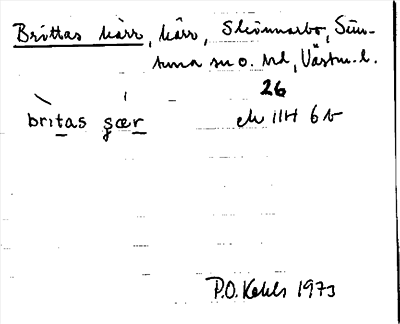 Brittas kärr, kärr, Skinnarbo, Sim-
tuna sn o. hd, Västm. l.
26
britas ʂær
ek 11H 6 b
P.O. Kekls 1973